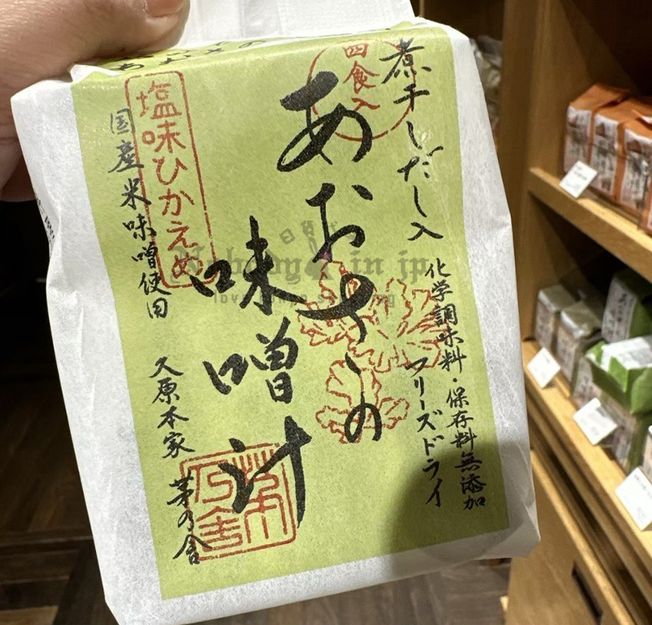 煮干しだし入
四食入
あおさの
味噌汁
化学調味料・保存料無添加
フリーズドライ
塩味ひかえめ
国産米味噌使用
久原本家 茅乃舎
茅乃舎
Nobody in jp